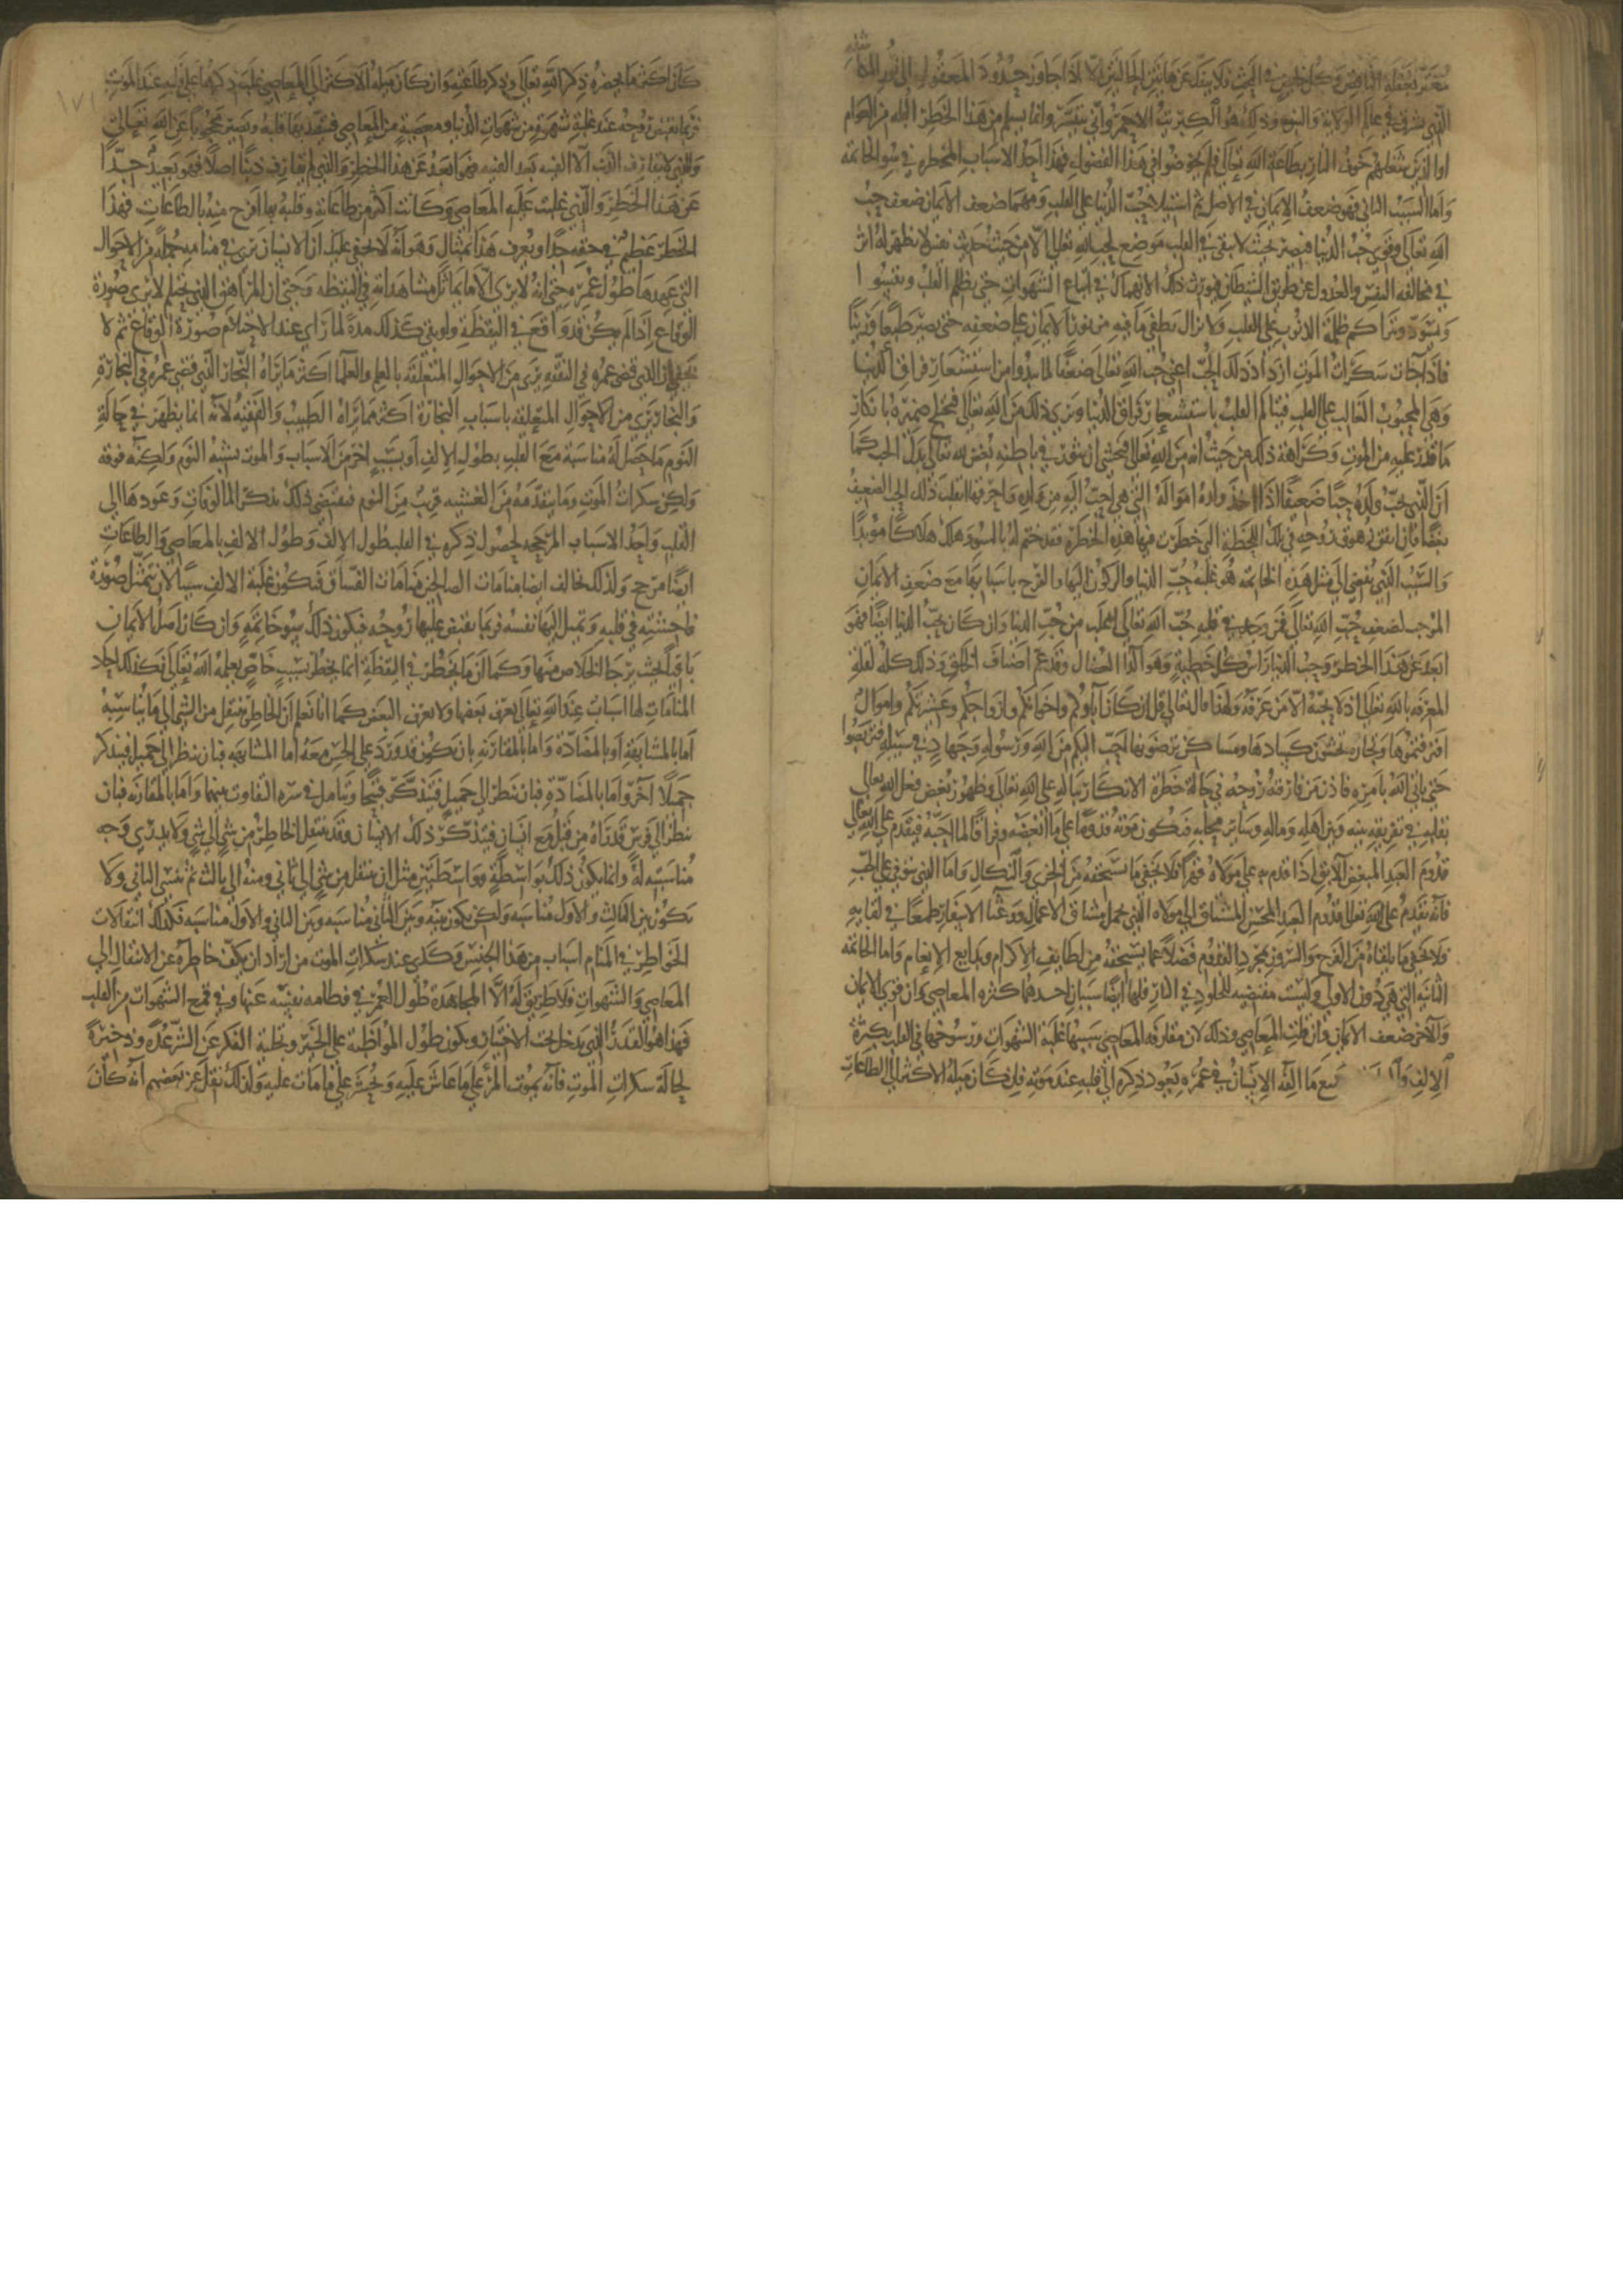 مغتر بعقله الناقص وكل خايض في البحث فلا ينفك عن هاتين الحالتين الا اذا جاوز حدود المعقول الى نور المكاشفة
الذي يشرق في عالم الولاية والنبوة وذلك هو الكبريت الاحمر وانى يتيسر وانما يسلم من هذا الخطر البله من العوام
او الذين شغلهم خوف النار بطاعة الله تعالى فلم يخوضوا في هذا الفضول فهذا احد الاسباب المخطرة في سو الخاتمة
واما السبب الثاني فهو ضعف الايمان في الاصل ثم استيلا حب الدنيا على القلب ومهما ضعف الايمان ضعف حب
الله تعالى وقوي حب الدنيا فيصير بحيث لا يبقى في القلب موضع لحب الله تعالى الا من حيث حديث نفس لا يظهر له اثر
في مخالفة النفس والعدول عن طريق الشيطان فيورث ذلك الانهماك في اتباع الشهوات حتى يظلم القلب ويقسوا
ويسود وتتراكم ظلمة الذنوب على القلب ولا يزال يطفي ما فيه من نور الايمان على ضعفه حتى يصير طبعا ورينا
فاذا جات سكرات الموت ازداد ذلك الحب اعني حب الله تعالى ضعفا لما يبدوا من استشعار فراق الدنيا
وهي المحبوب الغالب على القلب فيتالم القلب باستشعار فراق الدنيا ويرى ذلك من الله تعالى فيختلج ضميره بانكار
ما قدر عليه من الموت وكراهة ذلك من حيث انه من الله تعالى فيخشى ان يثور في باطنه بغض الله تعالى بدل الحب كما
ان الذي يحب ولده حبا ضعيفا اذا اخذ ولده امواله التي هي احب اليه من ولده واحرقها انقلب ذلك الحب الضعيف
بغضا فان اتفق زهوق روحه في تلك اللحظة التي خطرت فيها هذه الخطرة فقد ختم له بالسو وهلك هلاكا موبدا
والسبب الذي يفضي الى مثل هذه الخاتمة هو غلبة حب الدنيا والركون اليها والفرح باسبابها مع ضعف الايمان
الموجب لضعف حب الله تعالى فمن وجد في قلبه حب الله تعالى اغلب من حب الدنيا وان كان يحب الدنيا ايضا فهو
ابعد عن هذا الخطر وحب الدنيا راس كل خطية وهو الدا العضال وقد عم اصناف الخلق وذلك كله لقلة
المعرفة بالله تعالى اذ لا يحبه الا من عرفه ولهذا قال تعالى قل ان كان آباوكم واخوانكم وازواجكم وعشيرتكم واموال
اقترفتموها وتجارة تخشون كسادها ومساكن ترضونها احب اليكم من الله ورسوله وجهاد في سبيله فتربصوا
حتى ياتي الله بامره فاذن من فارقته روحه في حالة خطرة الانكار بباله على الله تعالى وظهور بغض فعل الله تعالى
بقلبه في تفريقه بينه وبين اهله وماله وساير محابه فيكون موته قدوما على ما ابغضه وفراقا لما احبه فيقدم على الله تعالى
قدوم العبد المبغض الآبق اذا قدم به على مولاه قهرا فلا يخفى ما يستحقه من الخزي والنكال واما الذي يتوفى على الحب
فانه يقدم على الله تعالى قدوم العبد المحسن المشتاق الى مولاه الذي تحمل مشاق الاعمال ووعثا الاسفار طمعا في لقايه
ولا يخفى ما يلقاه من الفرح والسرور بمجرد القدوم فضلا عما يستحقه من لطايف الاكرام وبدايع الانعام واما الخاتمة
الثانية التي هي دون الاولى وليست مقتضيه للخلود في النار فلها ايضا سببان احدهما كثرة المعاصي وان قوي الايمان
والآخر ضعف الايمان وان قلت المعاصي وذلك لان مقارفة المعاصي سببها غلبة الشهوات ورسوخها في القلب بكثرة
الالف و جميع ما الفه الانسان في عمره يعود ذكره الى قلبه عند موته فان كان ميله الاكثر الى الطاعات
١٧١
كان اكثر ما يحضره ذكر الله تعالى وذكر طاعته وان كان ميله الاكثر الى المعاصي غلب ذكرها على قلبه عند الموت
فربما تقبض روحه عند غلبة شهوة من شهوات الدنيا ومعصية من المعاصي فيتقيد بها قلبه ويصير محجوبا عن الله تعالى
والذي لا يقارف الذنب الا الفينه بعد الفينه فهو ابعد عن هذا الخطر والذي لم يقارف ذنبا اصلا فهو بعيد جدا
عن هذا الخطر والذي غلبت عليه المعاصي وكانت اكثر من طاعاته وقلبه بها افرح منه بالطاعات فهذا
الخطر عظيم في حقه جدا ويعرف هذا بمثال وهو انه لا يخفى عليك ان الانسان يرى في منامه جملة من الاحوال
التي عهدها طول عمره حتى انه لا يرى الا ما يماثل مشاهداته في اليقظه وحتى ان المراهق الذي يحتلم لا يرى صورة
الوقاع اذا لم يكن قد واقع في اليقظة ولو بقي كذلك مدة لما راى عند الاحتلام صورة الوقاع ثم لا
يخفى ان الذي قضى عمره في الفقه يرى من الاحوال المتعلقة بالعلم والعلما اكثر مما يراه التجار الذي قضى عمره في التجارة
والتجار يرى من الاحوال المتعلقه باسباب التجارة اكثر مما يراه الطبيب والفقيه لانه انما يظهر في حالة
النوم ما حصل له مناسبة مع القلب بطول الالف او بسبب اخر من الاسباب والموت شبه النوم ولكنه فوقه
ولكن سكرات الموت وما يتقدمه من الغشيه قريب من النوم فيقتضي ذلك تذكر المالوفات وعودها الى
القلب واحد الاسباب المرجحه لحصول ذكره في القلب طول الالف وطول الالف بالمعاصي والطاعات
ايضا مرجح ولذلك تخالف ايضا منامات الصالحين منامات الفساق فتكون غلبة الالف سببا لان يتمثل صورة
فاحشة في قلبه وتميل اليها نفسه فربما تقبض عليها روحه فيكون ذلك سو خاتمته وان كان اصل الايمان
باقيا بحيث يرجا الخلاص منها وكما ان ما يخطر في اليقظة انما يخطر بسبب خاص يعلمه الله تعالى فكذلك احاد
المنامات لها اسباب عند الله تعالى يعرف بعضها ولا يعرف البعض كما انا نعلم ان الخاطر ينتقل من الشي الى ما يناسبه
اما بالمشابهة او بالمضادة واما بالمقارنه بان يكون قد ورد على الحس معه اما المشابهه فبان ينظر الى جميل فيتذكر
جميلا آخر واما بالمضادة فبان ينظر الى جميل فيتذكر قبيحا ويتامل في شدة التفاوت بينهما واما بالمقارنه فبان
ينظر الى فرس قد راه من قبل مع انسان فيتذكر ذلك الانسان وقد ينتقل الخاطر من شي الى شي ولا يدري وجه
مناسبته له وانما يكون ذلك بواسطة وواسطتين مثل ان ينتقل من شي الى ثاني ومنه الى ثالث ثم ينسى الثاني ولا
يكون بين الثالث والاول مناسبه ولكن يكون بينه وبين الثاني مناسبه وبين الثاني والاول مناسبه فكذلك انتقالات
الخواطر في المنام اسباب من هذا الجنس وكذلك عند سكرات الموت من اراد ان يكف خاطره عن الانتقال الى
المعاصي والشهوات فلا طريق له الا المجاهدة طول العمر في فطامه نفسه عنها وفي قمع الشهوات من القلب
فهذا هو القدر الذي يدخل تحت الاختيار ويكون طول المواظبه على الخير وتخلية الفكر عن الشر عدة وذخيرة
لحالة سكرات الموت فانه يموت المرء على ما عاش عليه ويحشر على ما مات عليه ولذلك نقل عن بعضهم انه كان